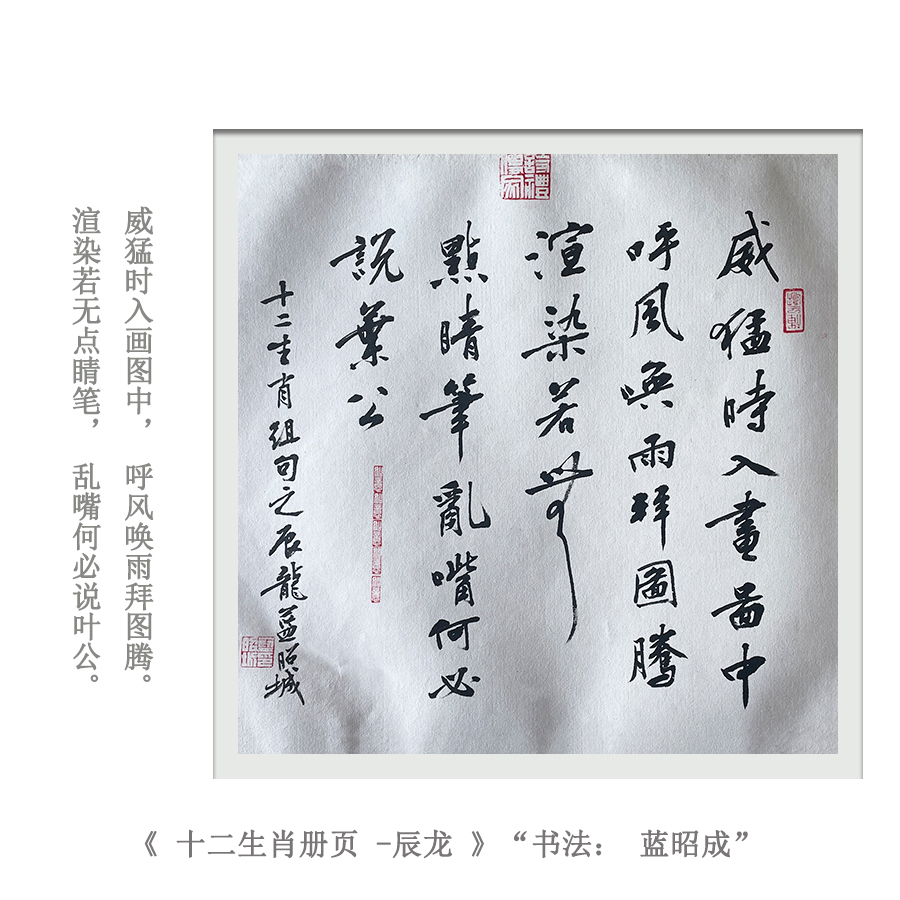 威猛时入画图中， 呼风唤雨拜图腾。
渲染若无点睛笔， 乱嘴何必说叶公。
威猛時入畫啚中
呼風喚雨拜圖騰
渲染若無
點睛筆亂嘴何必
説葉公
十二生肖组句之辰龍蓝昭城
《 十二生肖册页 -辰龙 》“书法： 蓝昭成”